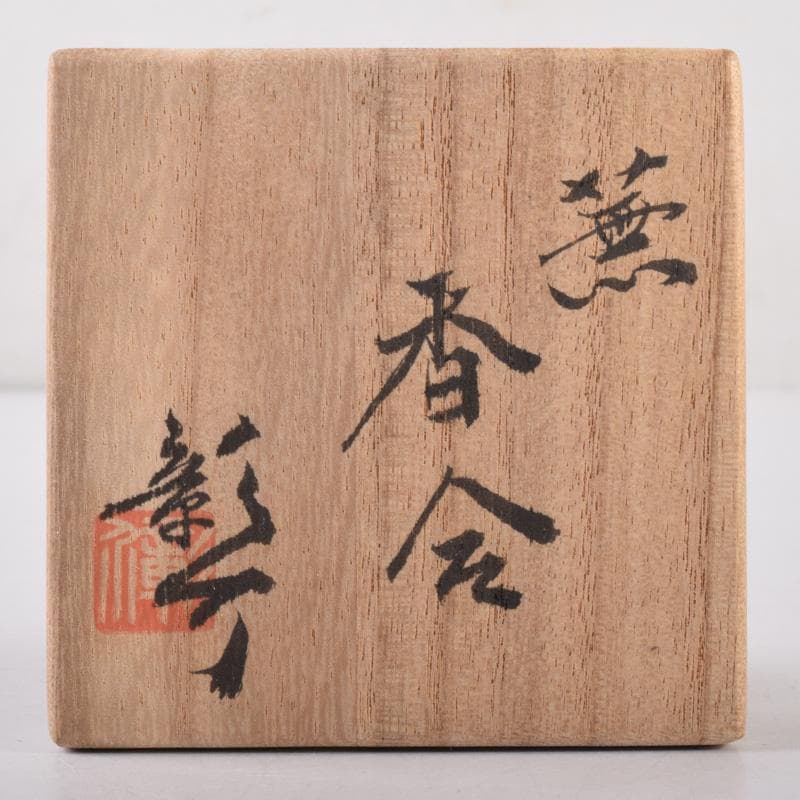 蕪
香合
彰